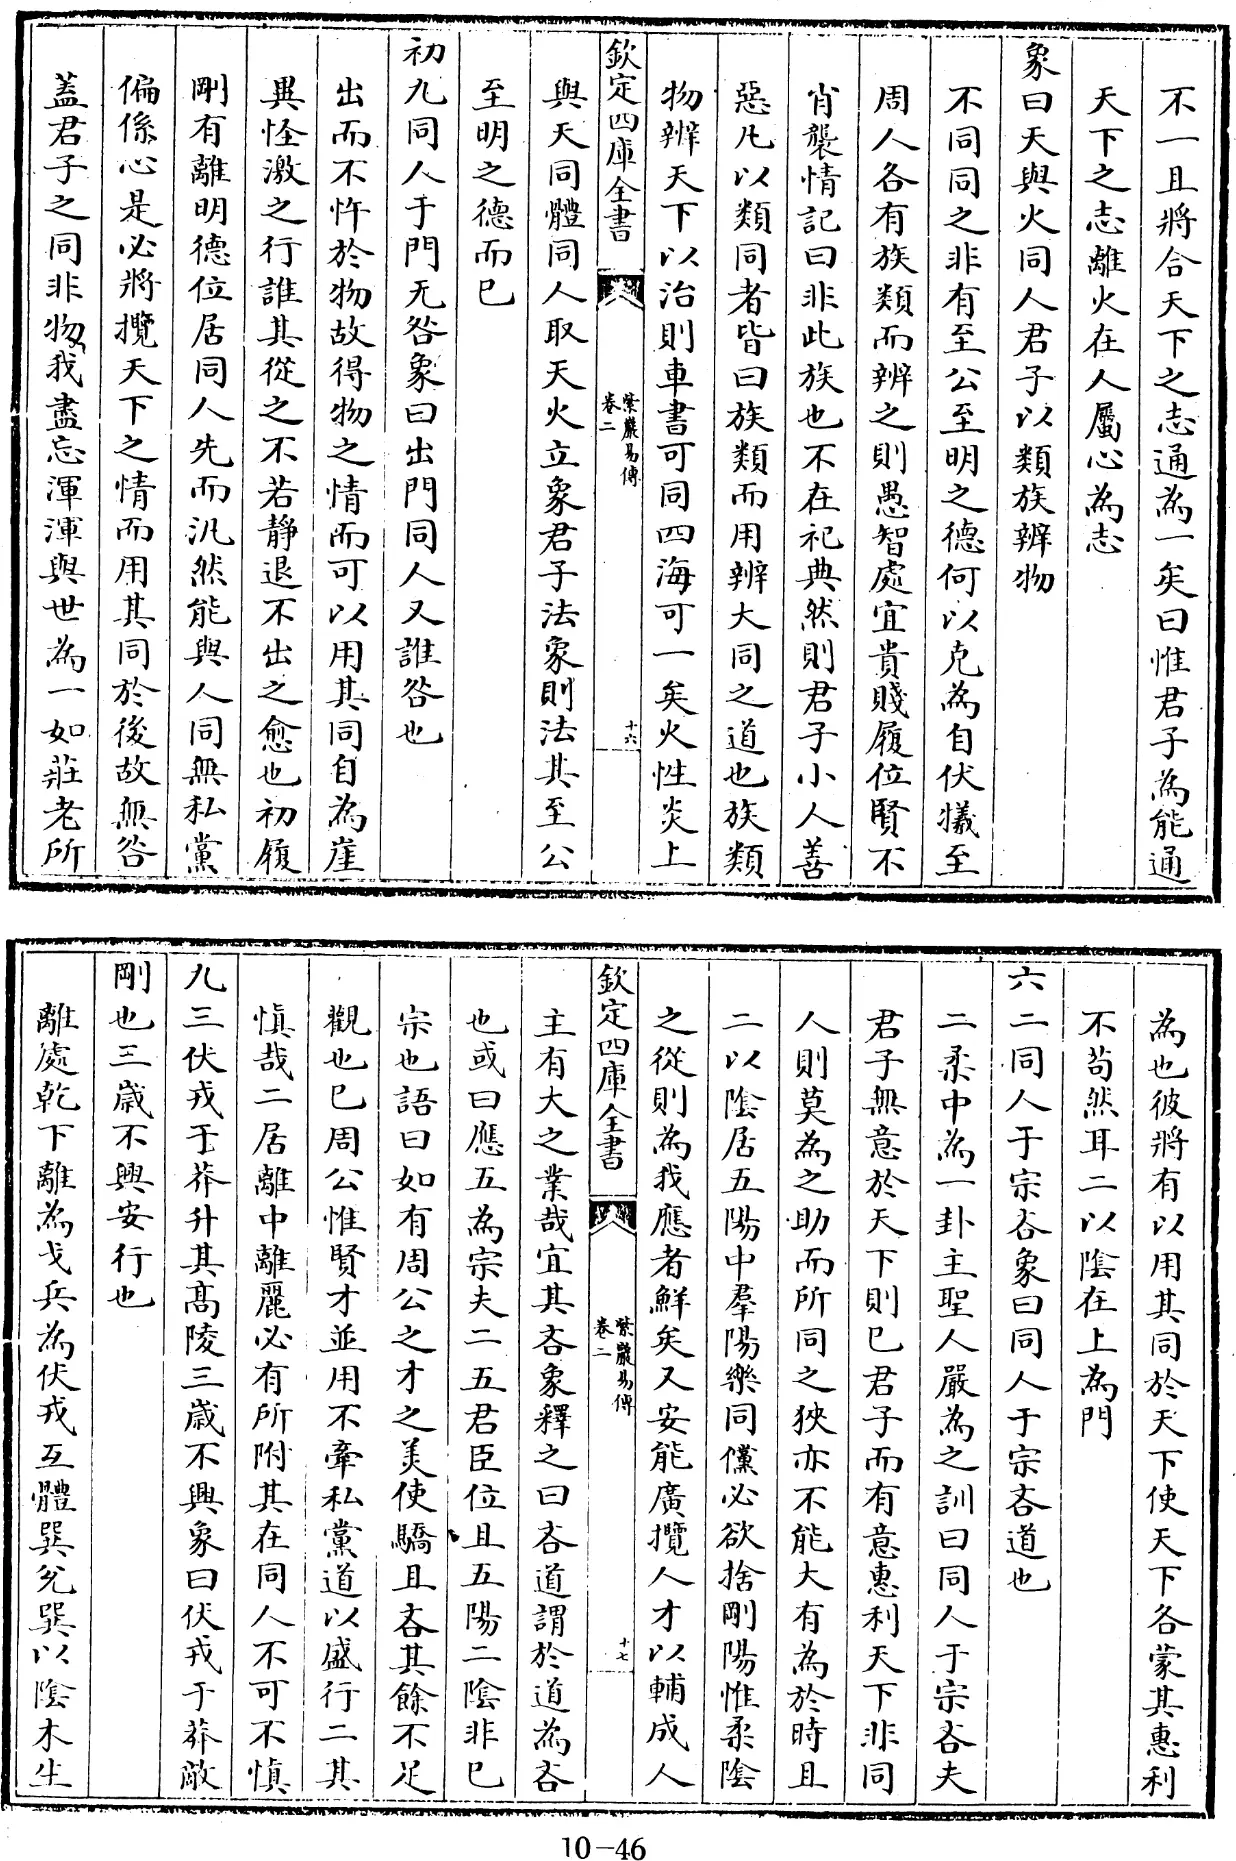 不一且將合天下之志通為一矣曰惟君子為能通
天下之志離火在人屬心為志
象曰天與火同人君子以類族辨物
不同同之非有至公至明之德何以克為自伏犧至
周人各有族類而辨之則愚智處宜貴賤履位賢不
肖襲情記曰非此族也不在祀典然則君子小人善
惡凡以類同者皆曰族類而用辨大同之道也族類
物辨天下以治則車書可同四海可一矣火性炎上
欽定四庫全書
紫巖易傳
卷二
十六
與天同體同人取天火立象君子法象則法其至公
至明之德而已
初九同人于門无咎象曰出門同人又誰咎也
出而不忤於物故得物之情而可以用其同自為崖
異怪激之行誰其從之不若靜退不出之愈也初履
剛有離明德位居同人先而汎然能與人同無私黨
偏係心是必將攬天下之情而用其同於後故無咎
蓋君子之同非物我盡忘渾渾與世為一如莊老所
為也彼將有以用其同於天下使天下各蒙其惠利
不苟然耳二以陰在上為門
六二同人于宗吝象曰同人于宗吝道也
二柔中為一卦主聖人嚴為之訓曰同人于宗吝夫
君子無意於天下則已君子而有意惠利天下非同
人則莫為之助而所同之狹亦不能大有為於時且
二以陰居五陽中羣陽樂同儻必欲捨剛陽惟柔陰
之從則為我應者鮮矣又安能廣攬人才以輔成人
欽定四庫全書
紫巖易傳
卷二
十七
主有大之業哉宜其吝象釋之曰吝道謂於道為吝
也或曰應五為宗夫二五君臣位且五陽二陰非已
宗也語曰如有周公之才之美使驕且吝其餘不足
觀也已周公惟賢才並用不牽私黨道以盛行二其
慎哉二居離中離麗必有所附其在同人不可不慎
九三伏戎于莽升其高陵三歲不興象曰伏戎于莽敵
剛也三歲不興安行也
離處乾下離為戈兵為伏戎互體巽兊巽以陰木生
10-46